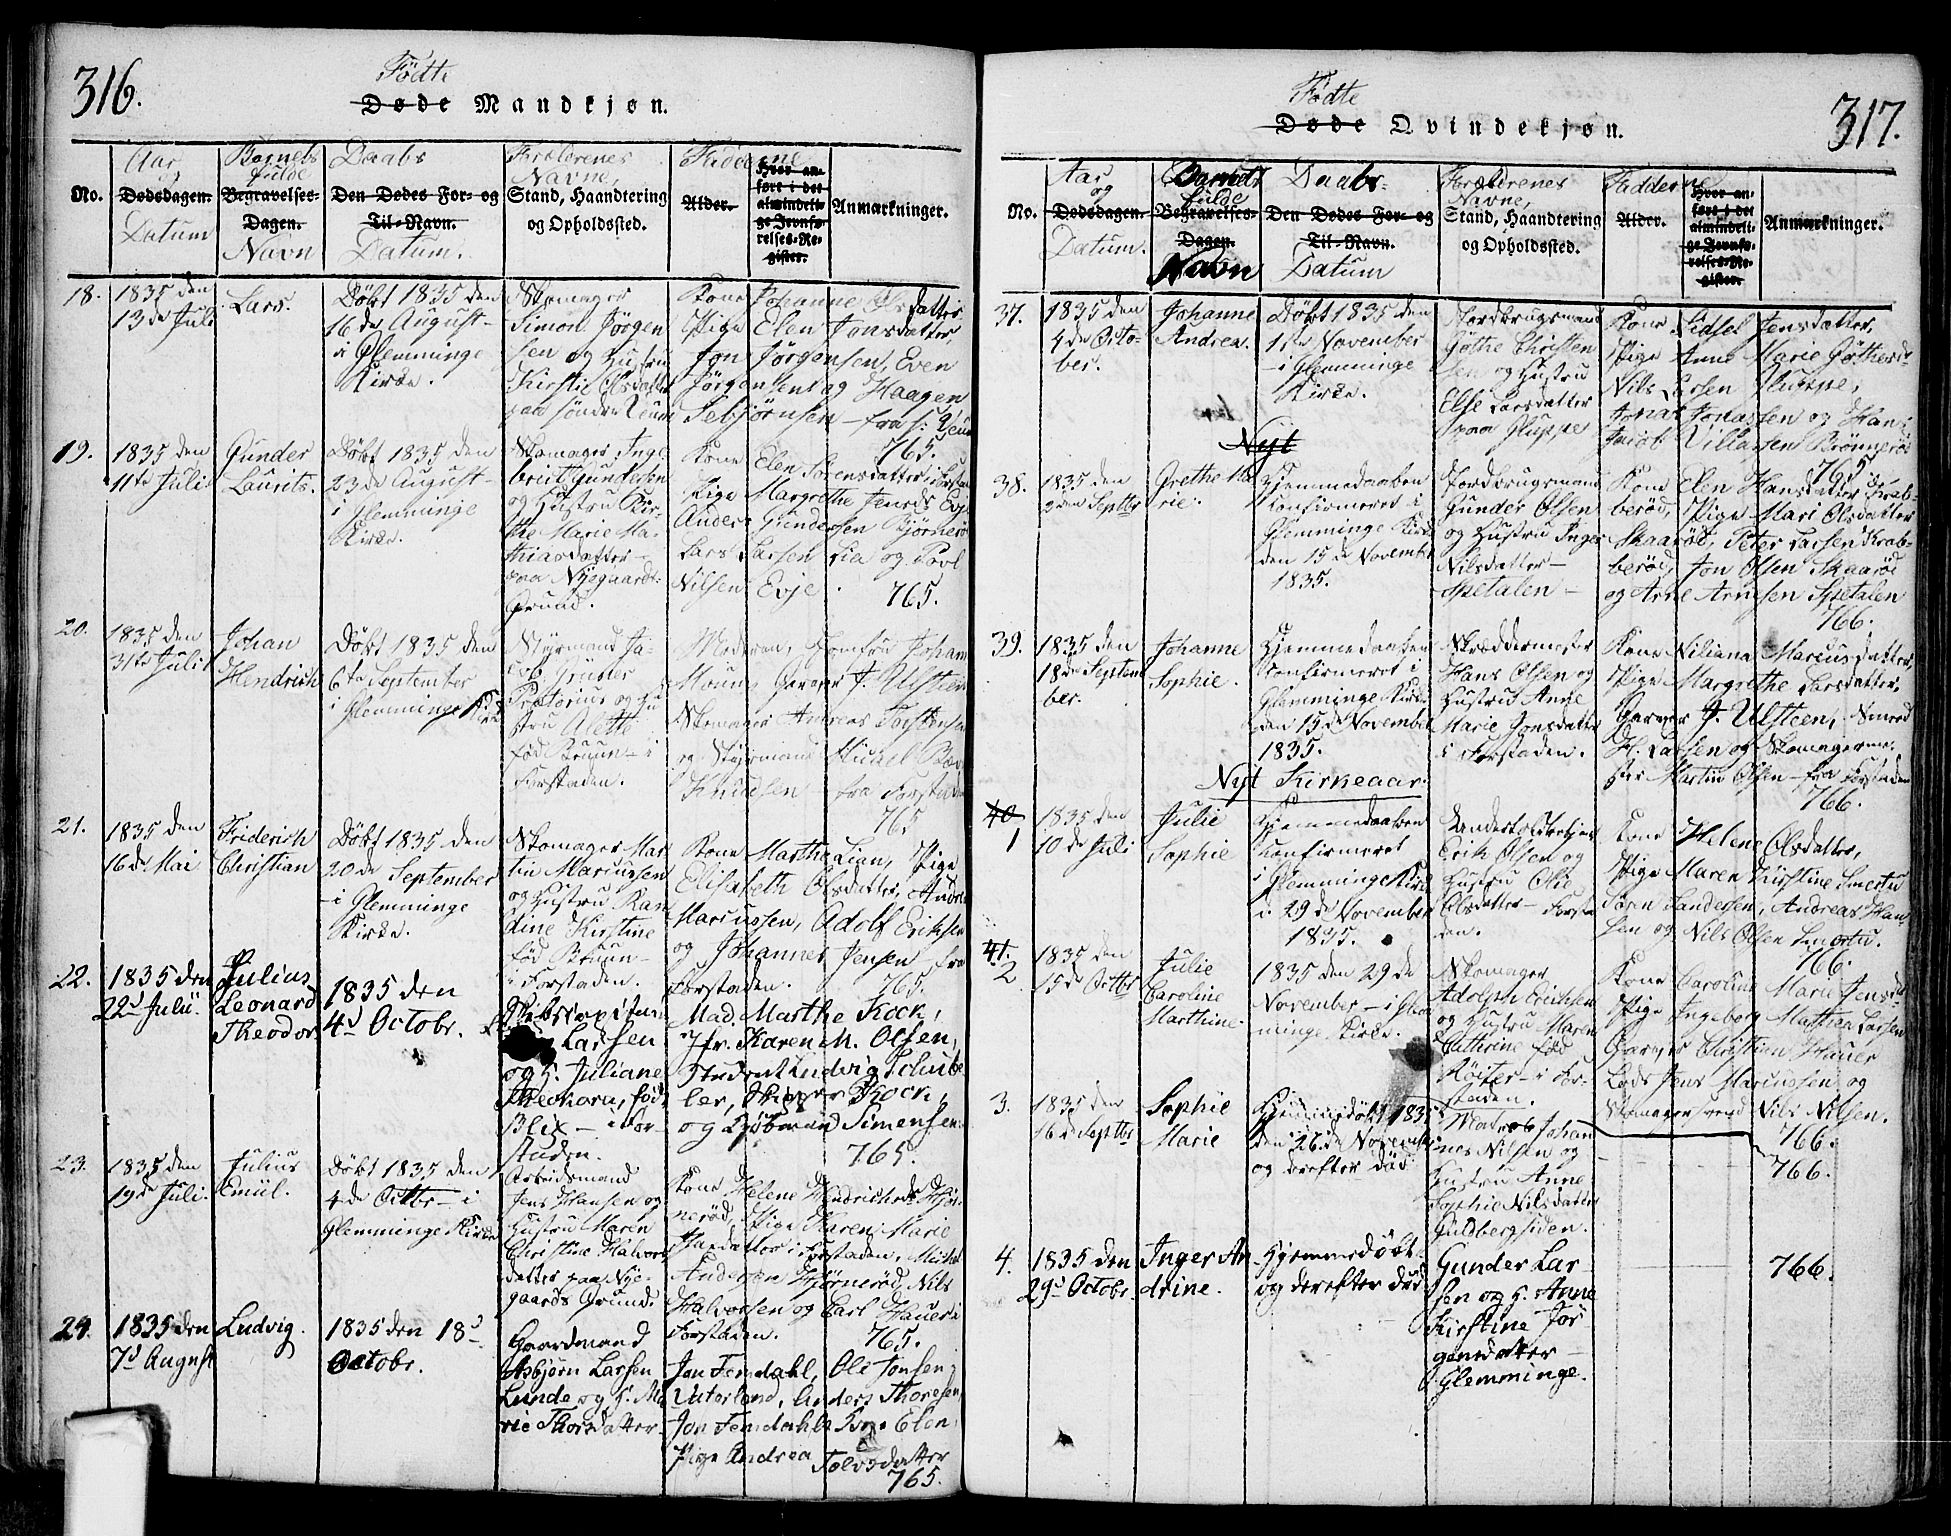 316.
Födte
Døde Mandkjøn.
No.
Aar
og
Dødsdagen.
Datum
Barnets
fulde
Begravelses-
Dagen.
Navn
Daabs
Den Dødes For- og
Til-Navn.
Datum.
Forældrenes
Navne,
Stand, Haandtering
og Opholdssted.
Fadderne
Alder.
Hvor an-
ført i det
almindeli-
ge Jevnfø-
relses-Re-
gister.
Anmærkninger.
18.
1835 den
13de Juli
Lars.
Döbt 1835 den
16de August
i Glemminge
Kirke.
Skomager
Simon Jörgen
sen og Hustru
Kirstie Olsdatter
paa söndre
Kone Johanne Olsdatter
Pige Elen Jonsdatter,
Jon Jörgensen, Even
Jörgensen og Haagen
Sebjörnsen – fra S:
765.
19.
1835 den
11te Juli
Gunder
Laurits.
Döbt 1835 den
23de August
i Glemminge
Kirke.
Skomager Inge
breit Gundersen
og Hustru Kir-
the Marie Ma-
thiasdatter –
paa Nyegaards
Grund.
Kone Elen Sörensdatter
Pige Margrethe Jensd: Evje
Anders Gundersen Bjørnerö
Lars Larsen Lia og Povl
Nilsen Evje.
765.
20.
1835 den
31te Juli
Johan
Hendrich
Döbt 1835 den
6te September
i Glemminge Kirke
Styrmand Ja-
cob Grüner
Prætorius og Hu
stru Alette
född Bruun – i
Forstaden.
Moderen, Jomfru Johanne
Garver J. Ulsteen
Skomager Andreas Torstensen
og Styrmand Michel
Knudsen – fra Forstaden
765
21.
1835 den
16de Mai
Friderich
Christian
Döbt 1835 den
20de September
– i Glemminge
Kirke.
Skomager Mar
tin Marcussen
og Hustru Kar
dine Kirstine
föd Bruun –
i Forstaden.
Kone Marthe Lian, Pige
Elisabeth Olsdatter, Andreas
Marcussen, Adolf Eriksen
og Johannes Jensen – fra
Forstaden.
765.
22.
1835 den
22d Julii.
Julius
Leonard
Theodor
1835 den
4d Octobr.
Skibscapitain
Larsen
og H. Juliane
Theodora, född
Blix – i For-
staden.
Mad. Marthe Kock,
Jfr. Karen M. Olsen,
Student Ludvig Schübe
ler, Skipper Kock,
og Lysbmand Simensen
765.
23.
1835 den
19de Juli.
Julius
Emiil.
Döbt 1835 den
4de Octbr – i
Glemminge Kirke
Arbeidsmand
Jens Hansen og
Hustru Maren
Christine Halvors
datter paa Nye-
gaards Grund.
Kone Helene Hendrichsd: Hjör-
neröd, Pige Karen Marie
datter i Forstaden, Michel
Andersen Hjörneröd, Nils
Halvorsen og Carl Hauer i
Forstaden.
765.
24.
1835 den
7d August
Ludvig.
1835 den 18d
Octobr.
Gaardmand
Asbjørn Larsen
Lunde og H. Ma
rie Thorsdatter.
Jon Femdahl, Ole Jonsen
Vaterland, Anders Thoresen,
Jon Femdahls Kone Elen,
Pige Andrea Tolvsdatter
765.
317.
Födte
Døde Qvindekjøn.
No.
Aar
og
Dødsdagen.
Datum.
Barnets
fulde
Begravelses-
Dagen.
Navn
Daabs-
Den Dødes For- og
Til-Navn.
Datum
Forældrenes
Navne,
Stand, Haandtering
og Opholdssted.
Fadderne
Alder.
Hvor an-
ført i det
almindeli-
ge Jevnfø-
relses-Re-
gister.
Anmærkninger.
37.
1835 den
4de Octo-
ber.
Johanne
Andrea.
Döbt 1835 den
1ste November
– i Glemminge
Kirke.
Jordbrugsmand
Göthe Christen
sen og Hustru
Else Larsdatter
paa Gluppe
Kone Sidsel Jensdatter,
Pige Anne Marie Göthesd:
Nils Larsen Gluppe,
Jonas Jonassen og Hans
Jacob Villassen Brönneröd
765.
Nyt
38.
1835 den
3den Septbr
Grethe Ma
rie.
Hjemmedaaben
Confirmeret i
Glemminge Kirke
den 15de November
1835.
Jordbrugsmand
Gunder Olsen
og Hustru Inger
Nilsdatter –
Spetalen –
Kone Elen Hansdatter Krab-
beröd, Pige Mari Olsdatter
Skaaröd, Peter Larsen Krab-
beröd, Jon Olsen Skaaröd
og Arne Arnesen Spetalen
766.
39.
1835 den
18de Septem
ber.
Johanne
Sophie.
Hjemmedaaben
Confirmeret i
Glemminge Kirke
den 15de November
1835.
Skræddermester
Hans Olsen og
Hustru Anne
Marie Jonsdatter
i Forstaden.
Kone Niliana Marcusdatter,
Pige Margrethe Larsdatter,
Garver J. Ulsteen, Svend
H. Larsen og Skomagerme-
ster Martin Olsen – fra Forstaden
766.
Nyt Kirkeaar.
40
1
1835 den
10de Juli
Julie
Sophie
Hjemmedaaben
Confirmeret
i Glemminge Kirke
d: 29de November
1835.
Erik Olsen og
Hustru Olie
Olsdatter – Forsta
den.
Kone Helene Olsdatter,
Pige Maren Kirstine Smertu
Sören Sandersen, Andreas Han-
sen og Nils Olsen Smertu.
766.
41.
2
1835 den
15de Octbr
Julie
Caroline
Marthine.
1835 den 29de
November – i Glem
minge Kirke.
Skomager
Adolph Erichsen
og Hustru Maren
Cathrine föd
Röiter – i For-
staden.
Kone Caroline Marie Jensd:
Pige Ingeborg Mathea Larsen
Garver Christian Hauer
Lods Jens Marcussen og
Skomagersvend Nils Nilsen.
766.
3.
1835 den
16de Septbr
Sophie
Marie
Hjemmedöbt 1835
den 26de November
og derefter död
Matros Johan
nes Nilsen og
Hustru Anne
Sophie Nilsdatter
Guldbergsiden.
766.
4.
1835 den
29d Octobr.
Inger An
drine.
Hjemmedöbt
og derefter död
Gunder Lar
sen og H. Anne
Kirstine Jör
gensdatter –
Glemminge.
766.